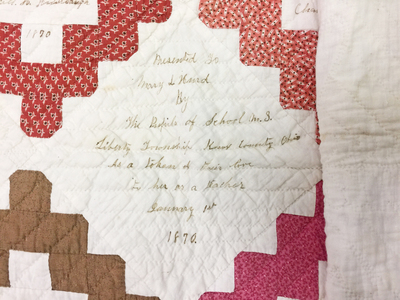 1890
Presented To
Mary L Hand
By
The Pupils of School No. 3.
Liberty Township Knox County Ohio
As a token of their love
for her as a Teacher
January 1st
1890.